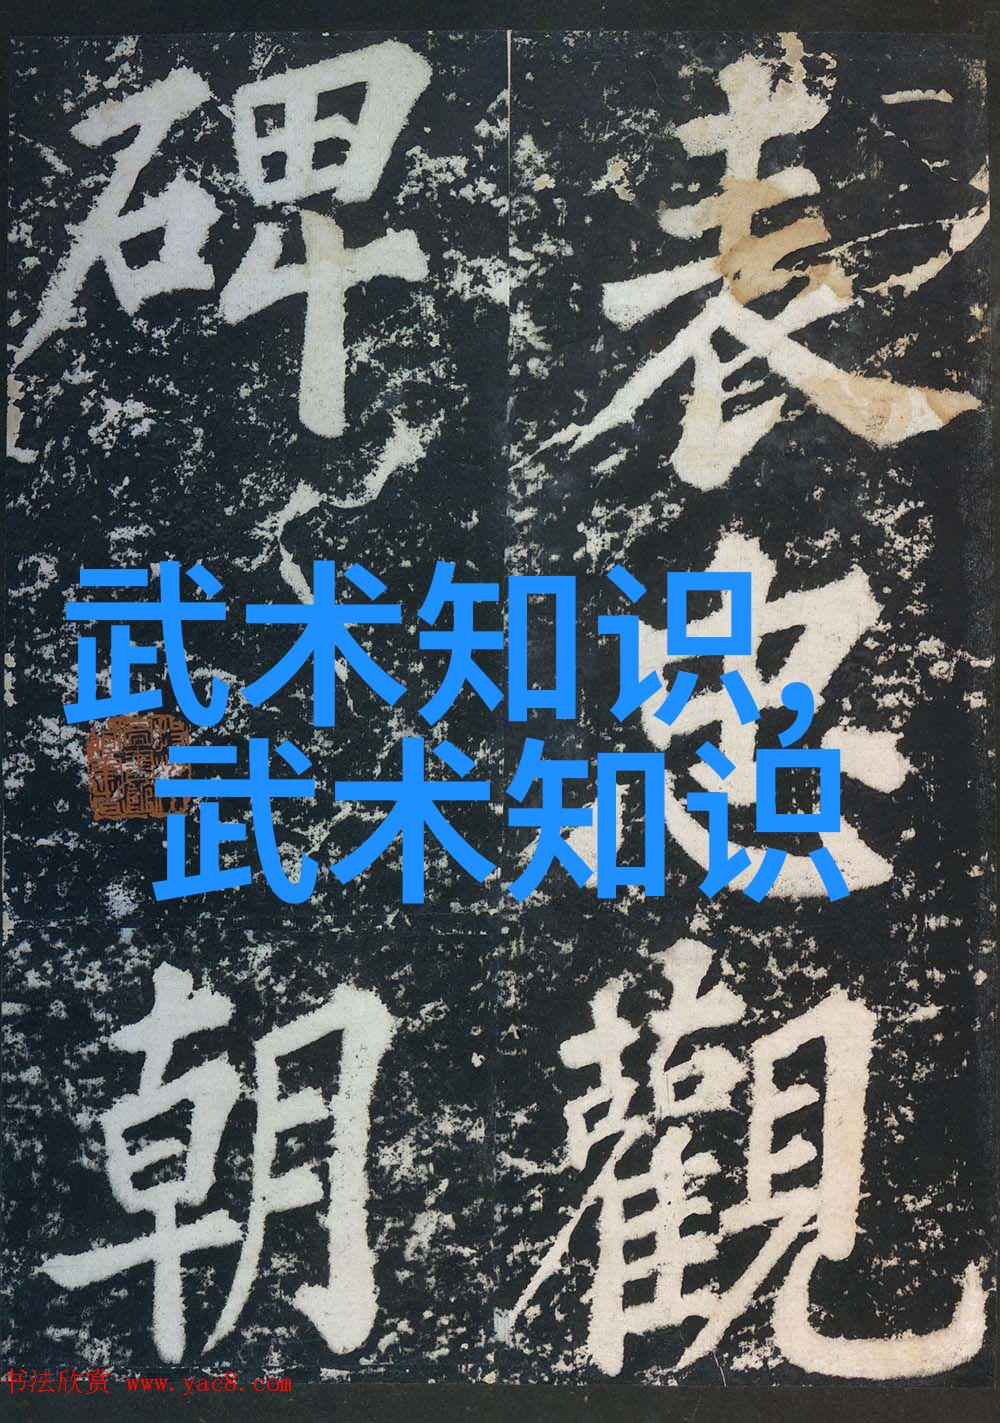 表忠觀
碑
朝
武术知识,
武术知识
书法欣赏 www.yac8.com